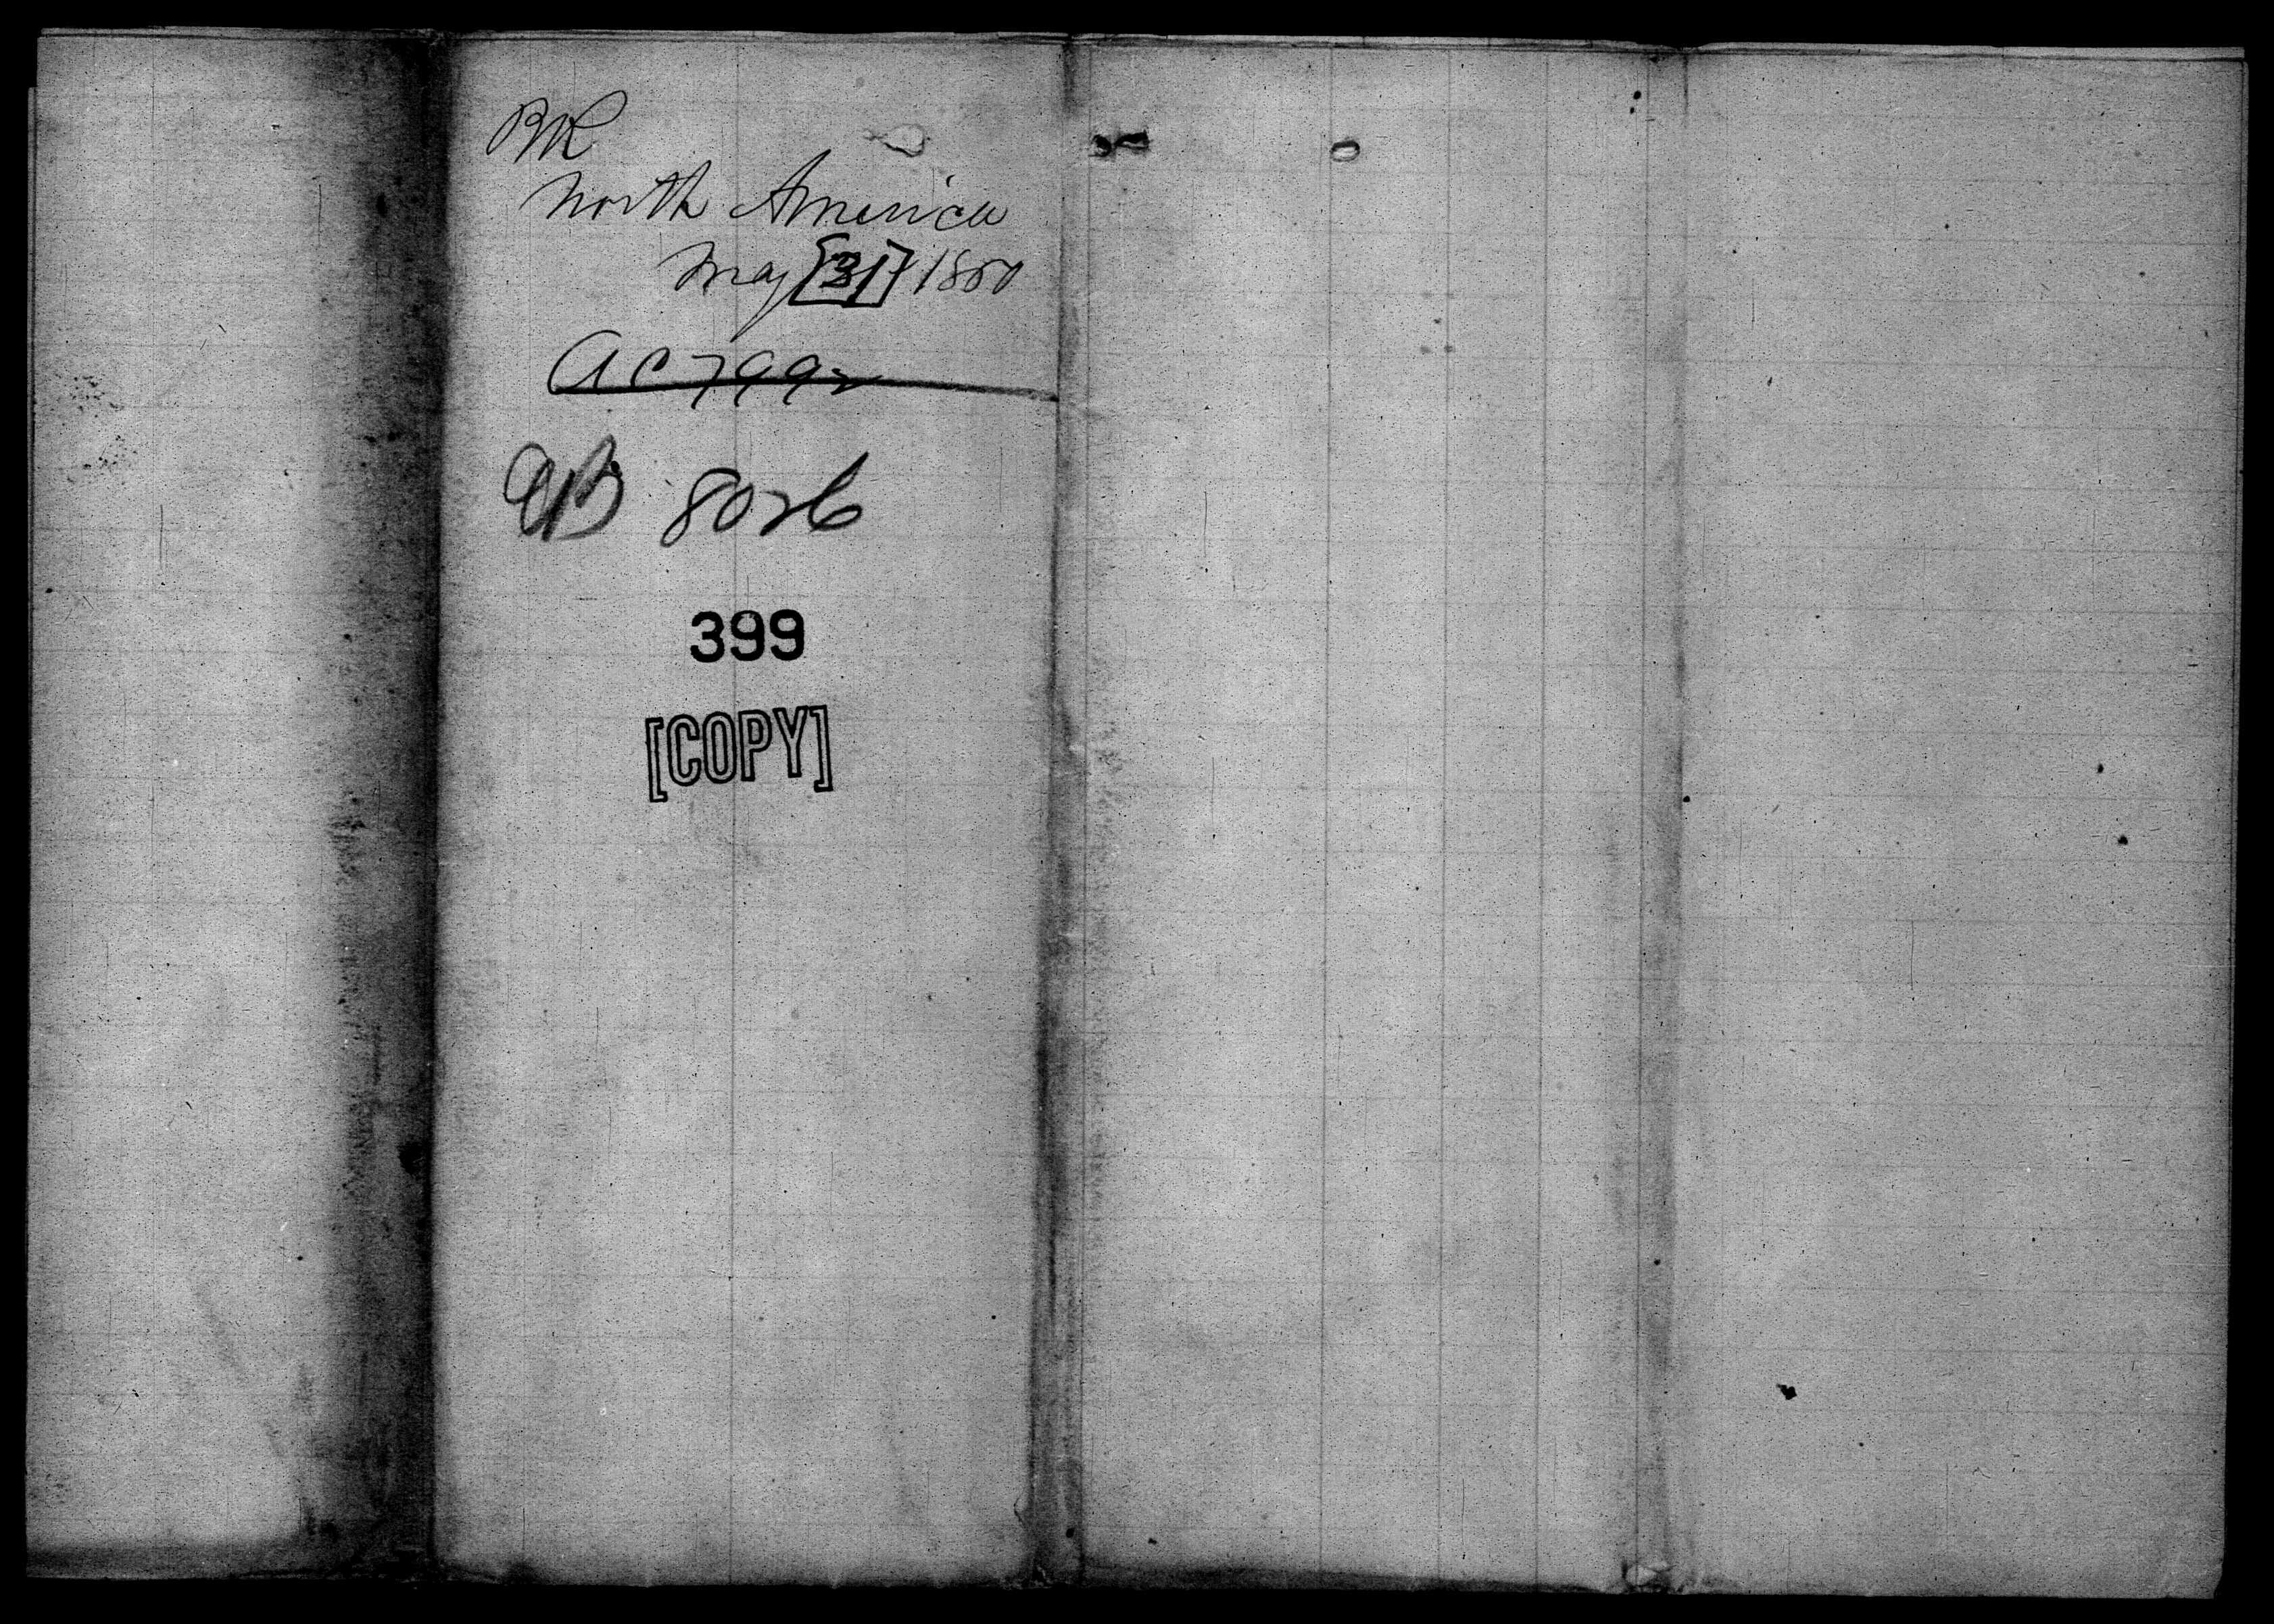 BR
North America
May [31] 1850
AC 7992
AB 8026
399
[COPY]